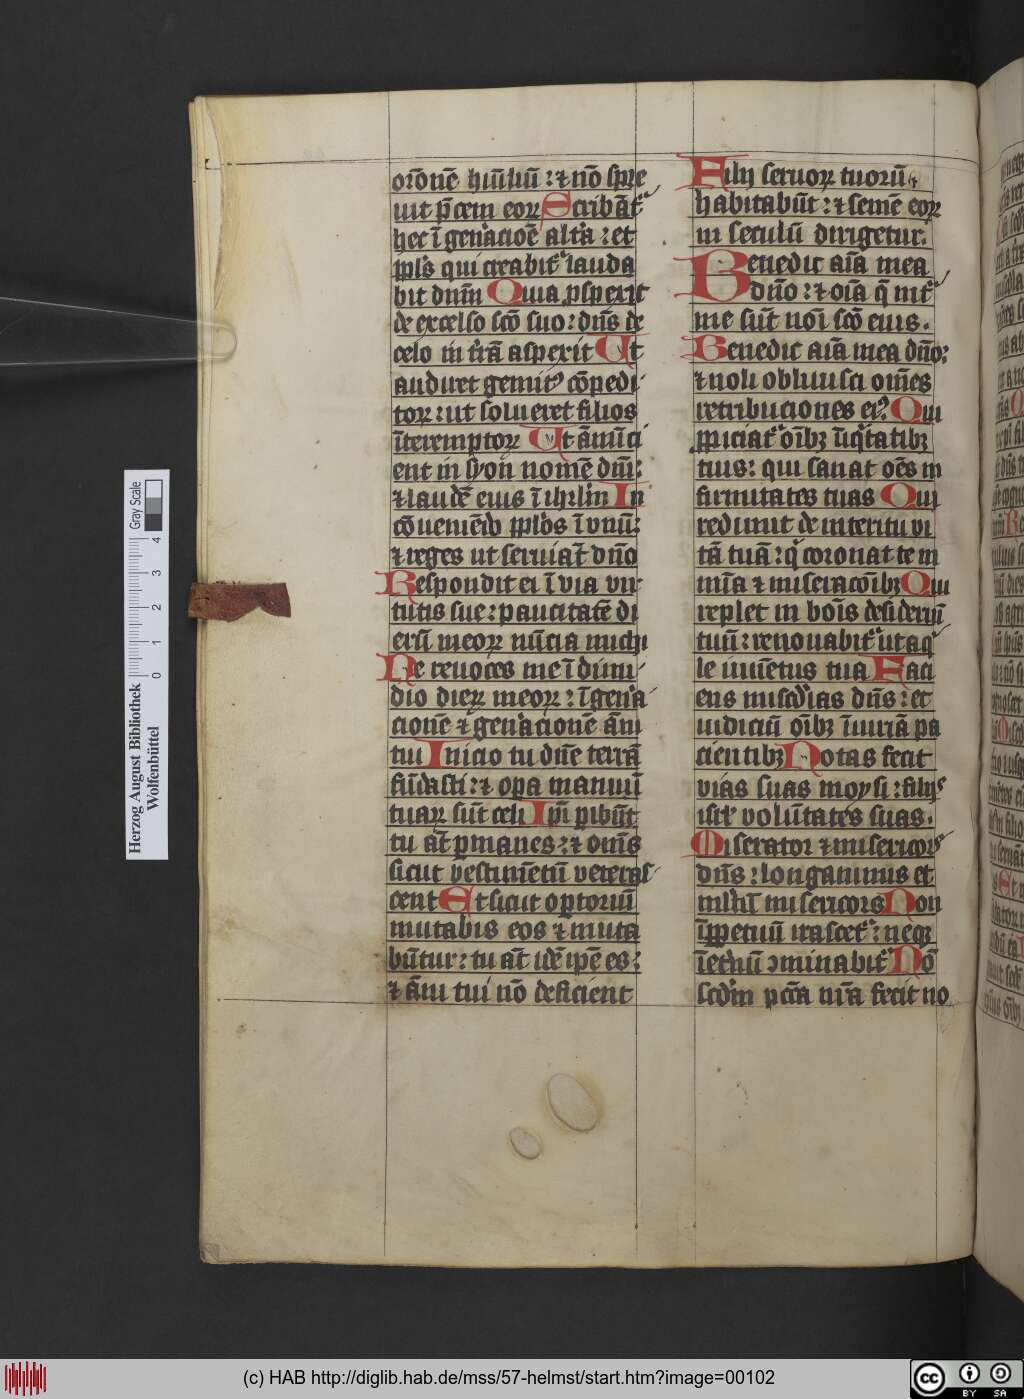 or̄onē hūiliū : ⁊ nō spre
uit p̄cem eoꝝ Scribāt᷑
hec ī gen̄acioē alt̄a : et
ipl̄s qui creabit᷑ lauda
bit dnm̄ Quia ꝓspexit
de excelso scō suo : dn̄s de
celo in tr̄ā aspexit Ut
audiret gemitꝰ cōpedi
toꝝ : ut solueret filios
īteremptoꝝ Ut ānūci
ent in syon nomē dn̄i :
⁊ laudē eius ī ihrl̄m In
cōueniēdo ppl̄os ī vnū :
⁊ reges ut seruiāt dn̄o
Respondit ei ī via vir
tutis sue : paucitatē di
erū meoꝝ nūcia michi
Ne reuoces me ī dimi
dio dieꝝ meoꝝ : ī gen̄a
cionē ⁊ gen̄acionē āni
tui Inicio tu dn̄e terrā
fūdasti : ⁊ opa manuū
tuaꝝ sūt celi Ip̄i ꝑibūt
tu at̄ ꝑmanes : ⁊ om̄s
sicut vestimētū veteras
cent Et sicut optoriū
mutabis eos ⁊ muta
būtur : tu at̄ idē ipē es :
⁊ āni tui nō deficient
Filij seruoꝝ tuorū
habitabūt : ⁊ semē eoꝝ
in seculū dirigetur.
Benedic aīa mea
dn̄o : ⁊ oīa q̄ int᷑
me sūt noī scō eius.
Benedic aīa mea dn̄o :
⁊ noli obliuisci om̄es
retribuciones eiꝰ Qui
ꝓpiciat᷑ oībꝫ īiq̄tatibꝫ
tuis : qui sanat oēs in
firmitates tuas Qui
redimit de interitu vi
tā tuā : q̄ coronat te in
mīa ⁊ miseracōībꝫ Qui
replet in boīs desideriū
tuū : renouabit᷑ ut aq̄
le iuuētus tua Faci
ens misc̄dias dn̄s : et
iudiciū oībꝫ īiuriā pa
cientibꝫ Notas fecit
vias suas moysi : filijs
isrl̄ volūtates suas.
Miserator ⁊ misericors
dn̄s : longanimis et
ml̄tū misericors Non
īꝑpetuū irascet᷑ : neqꝫ
īet̄nū ꝯminabit᷑ Nō
scd̄m pcc̄a nr̄a fecit no
Gray Scale
0 1 2 3 4
Herzog August Bibliothek
Wolfenbüttel
(c) HAB http://diglib.hab.de/mss/57-helmst/start.htm?image=00102
cc BY SA